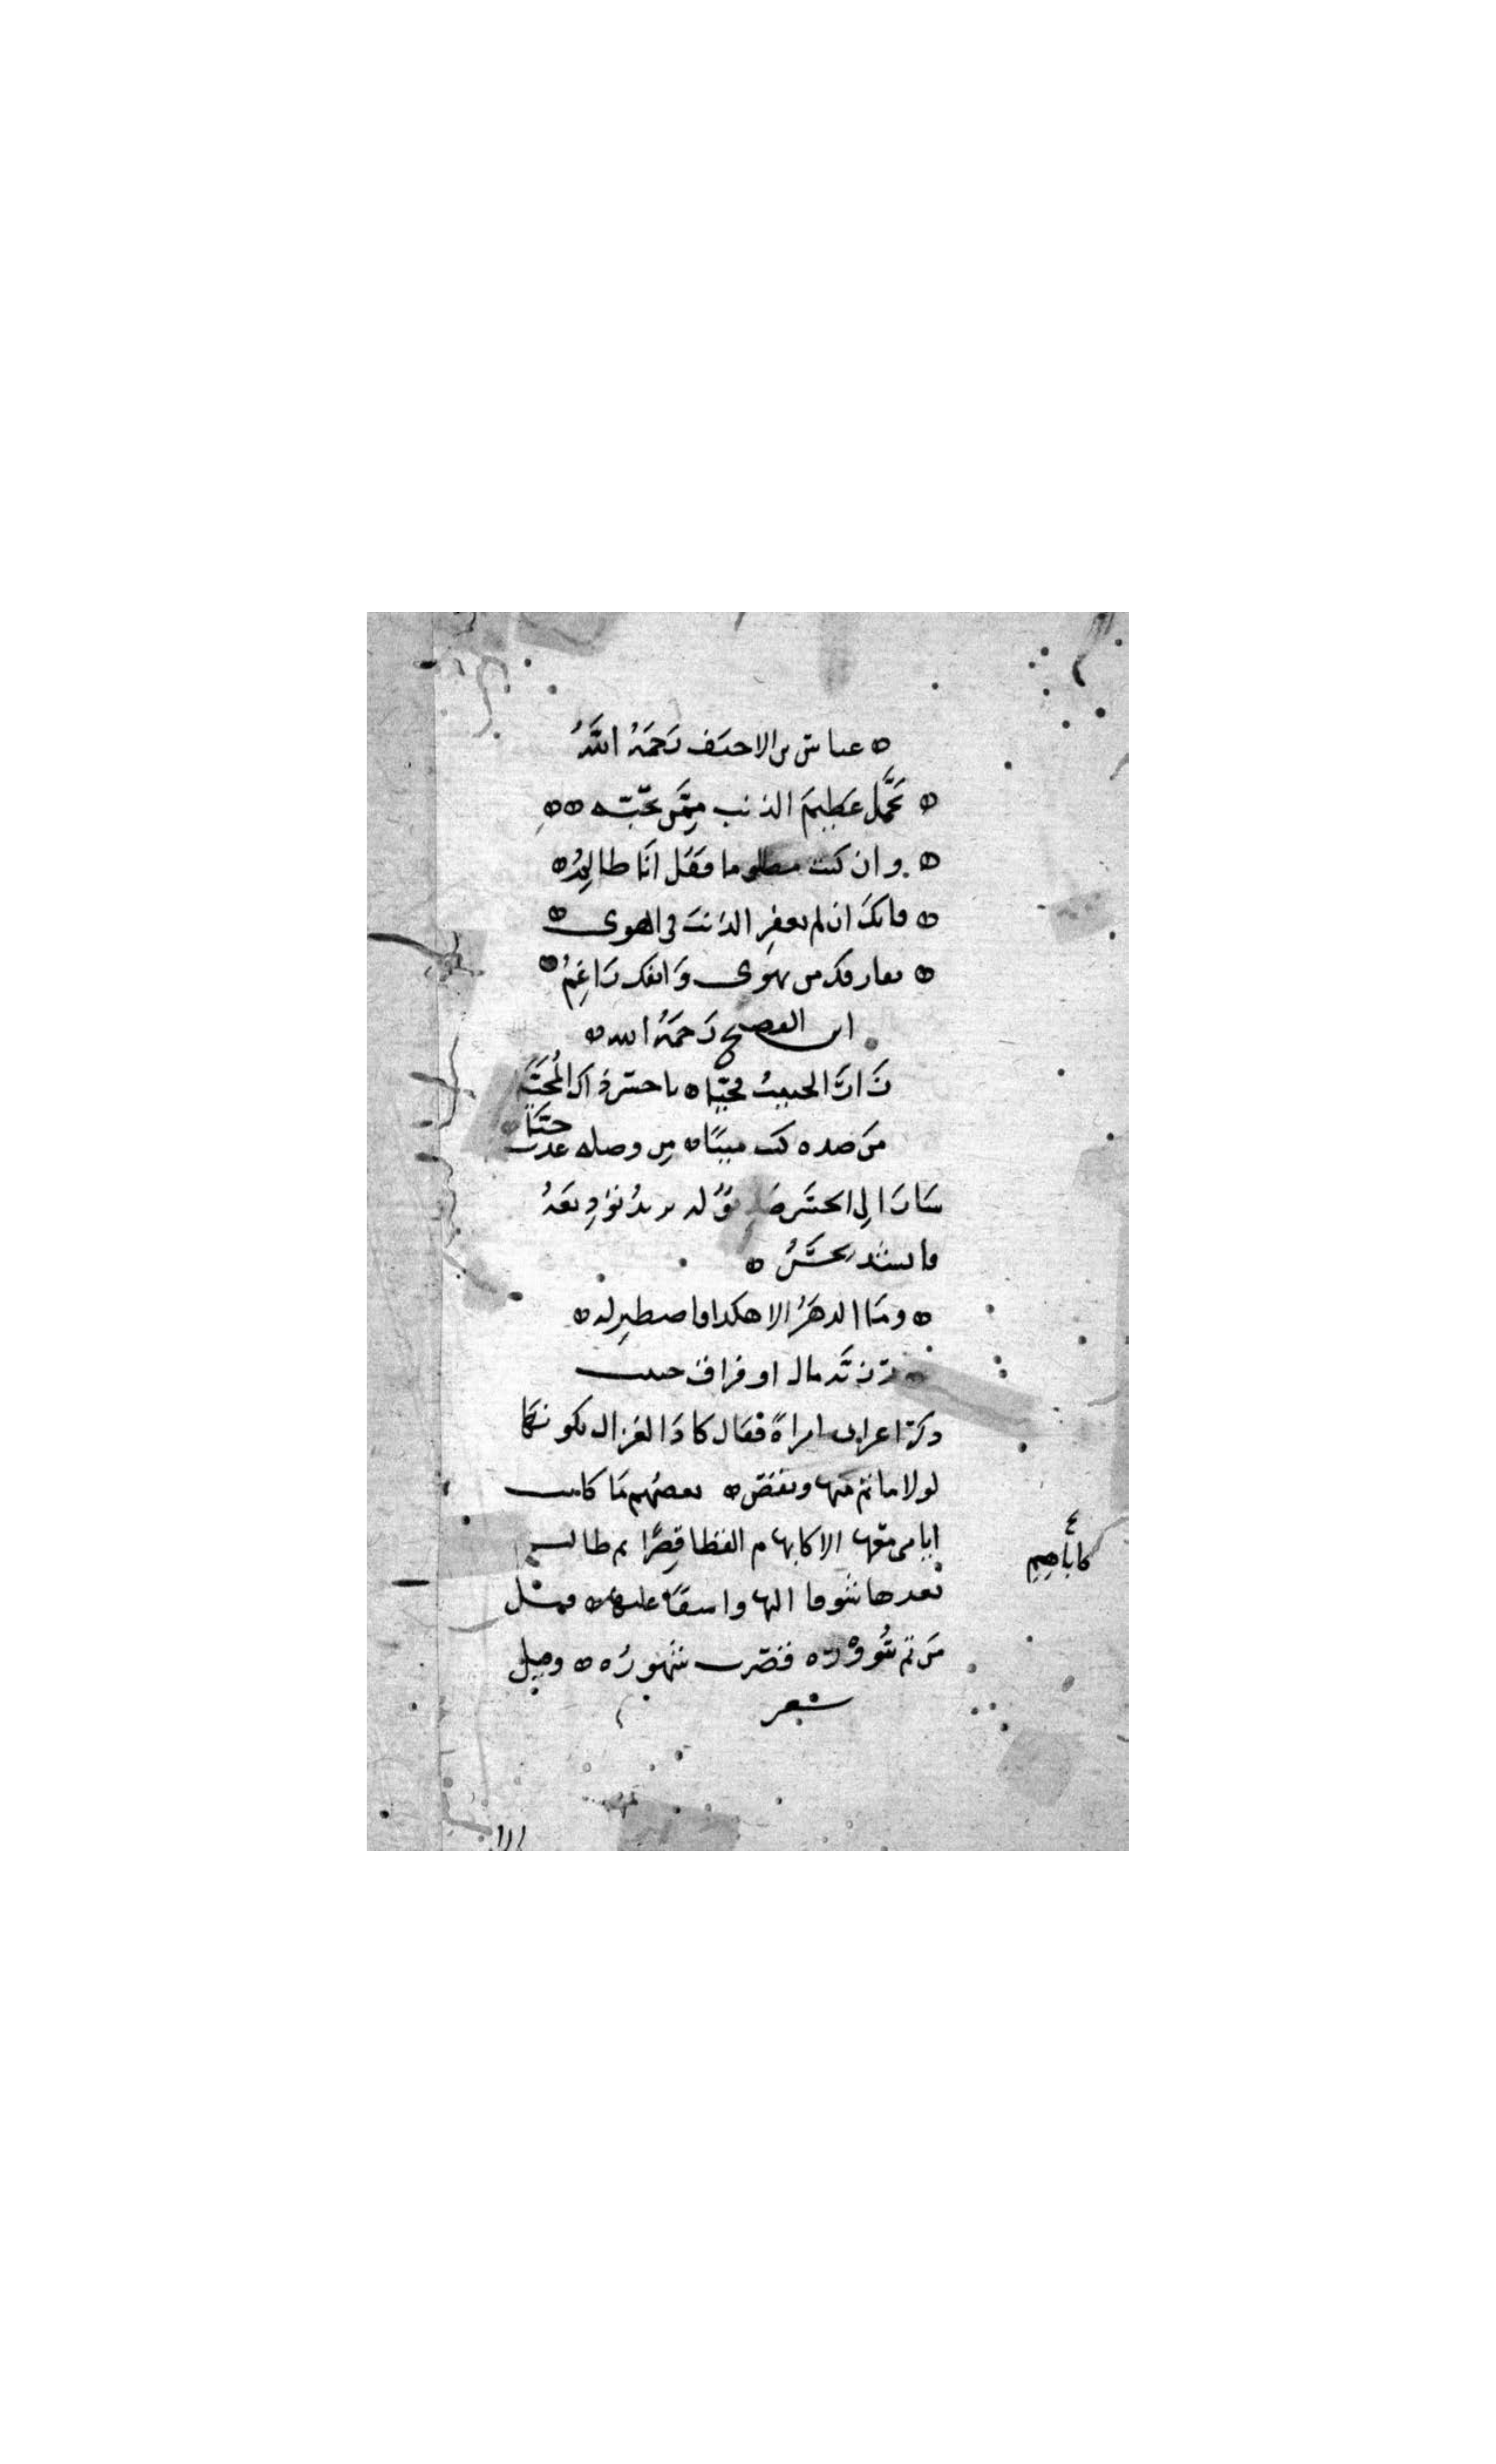 عباس بن الاحنف رَحمَهُ اللَّهُ
تَحَمَّل عَظِيمَ الذنب مِمَّن تحبّه
وان كنت مظلوما فقَل انَا ظالِمُ
فانكَ ان لم تغفِرِ الذنبَ في الهوى
تفارقك من تهوى وَانفك رَاغِمُ
ابن الفصيح رَحمَهُ الله
زَارَ الحبيبُ محيّيا يا حسن ذاك المُحَيَّا
مَن صده كنت ميتًا مِن وصله عدت حَيَّا
سَارَ الِى
فانشد
ومَا الدهرُ الا هكذا فاصطبِر له
رَزِيَّة مال او فراق حبيب
ذكر اعرابي امراةً فقال كادَ الغزال يكونهَا
لولا ما تمّ منها ونقص بعضهم مَا كانت
ايامى معها الا كابهام القطا قِصَرًا ثم طالت
بعدها شوقا اليها واسفًا عليها وقيل
مَن تم سُرُورُه قصُرت شهورُه وقيل
شعر
كابَاهِيمِ